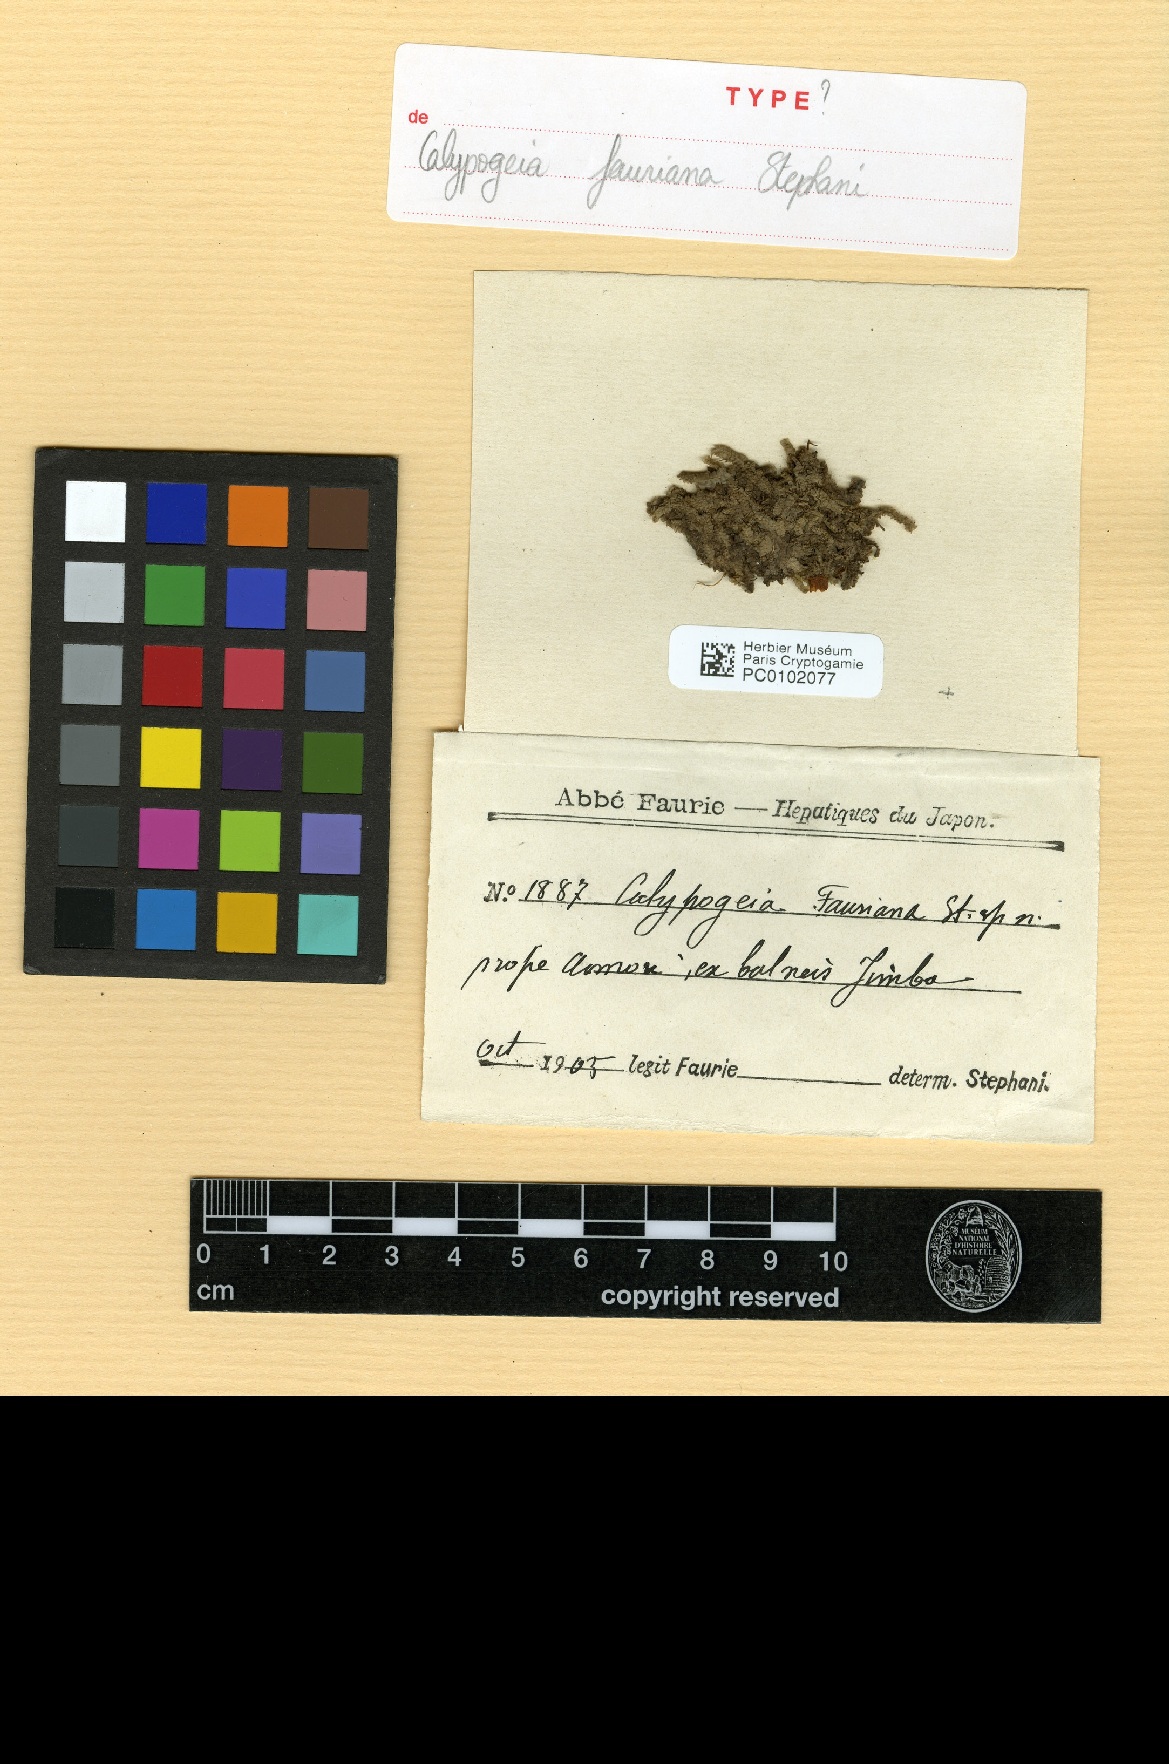 TYPE ?
de
Calypogeia fauriana Stephani
Herbier Muséum
Paris Cryptogamie
PC0102077
Abbé Faurie — Hepatiques du Japon.
No. 1887 Calypogeia Fauriana St. sp n.
prope Aomori, ex balneis Jimba
Oct 1905 legit Faurie determ. Stephani.
0 1 2 3 4 5 6 7 8 9 10
cm copyright reserved
MUSEUM
NATIONAL
D'HISTOIRE
NATURELLE